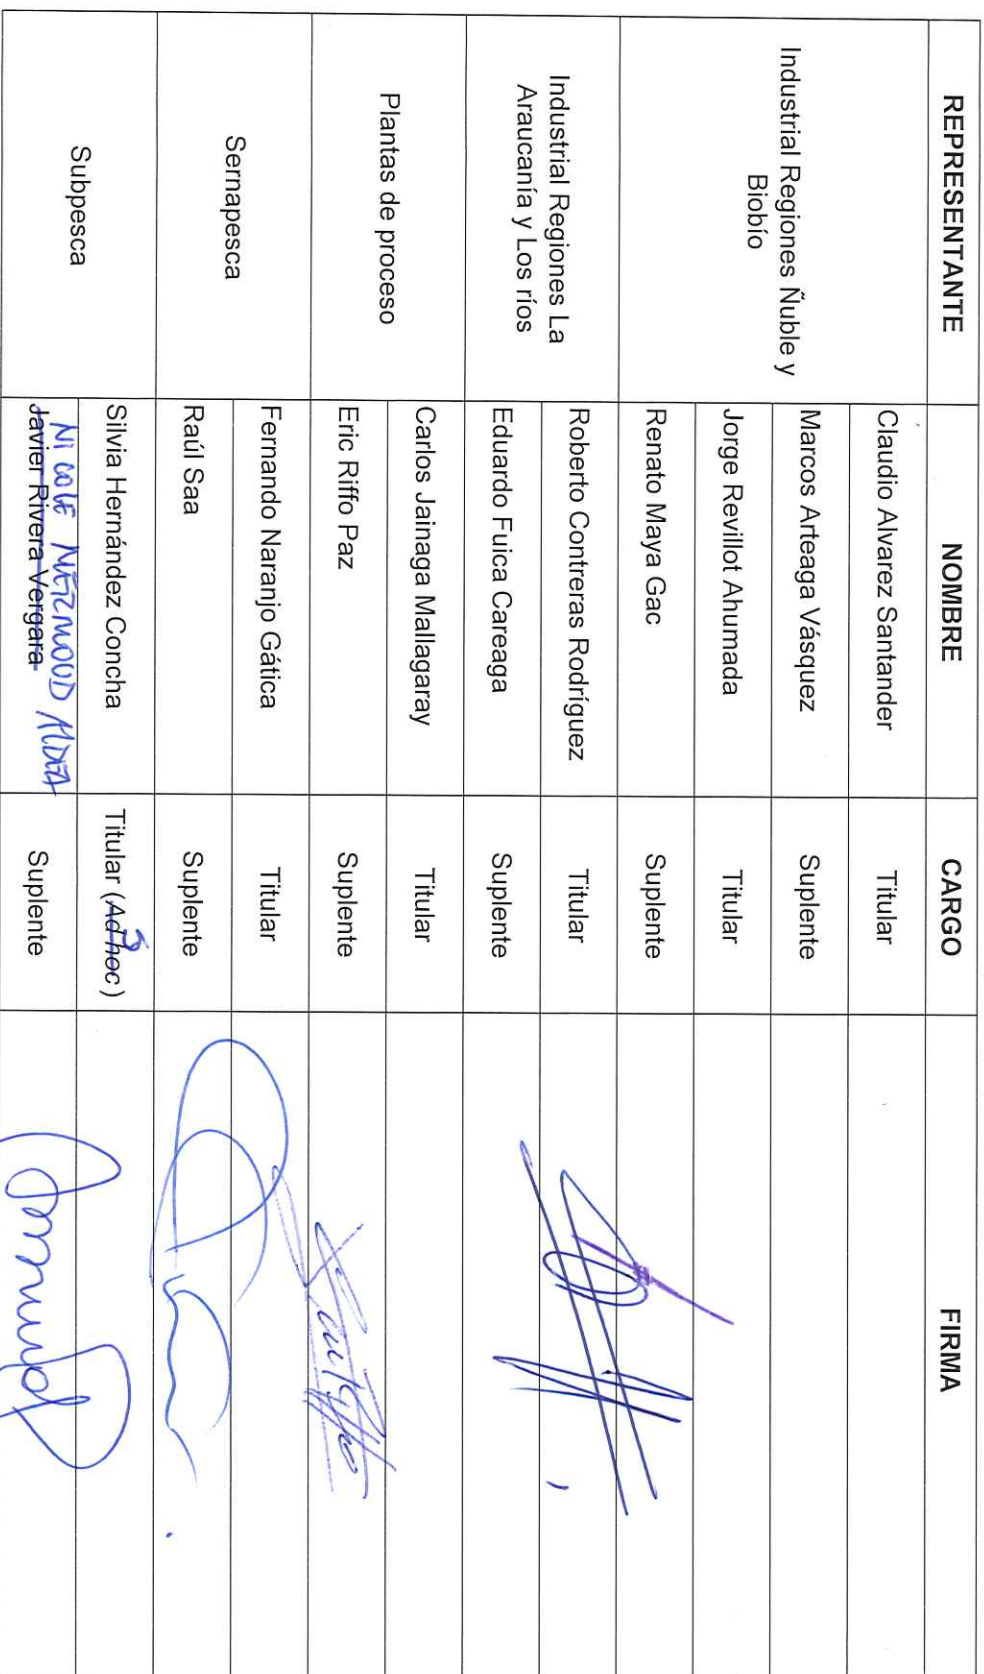 REPRESENTANTE NOMBRE CARGO FIRMA
Industrial Regiones Ñuble y
Biobío
Claudio Alvarez Santander Titular
Marcos Arteaga Vásquez Suplente
Jorge Revillot Ahumada Titular
Renato Maya Gac Suplente
Industrial Regiones La
Araucanía y Los ríos
Roberto Contreras Rodríguez Titular
Eduardo Fuica Careaga Suplente
Plantas de proceso
Carlos Jainaga Mallagaray Titular
Eric Riffo Paz Suplente
Sernapesca
Fernando Naranjo Gática Titular
Raúl Saa Suplente
Subpesca
Silvia Hernández Concha Titular (Ad hoc)
NICOLE
Javier Rivera Vergara Suplente